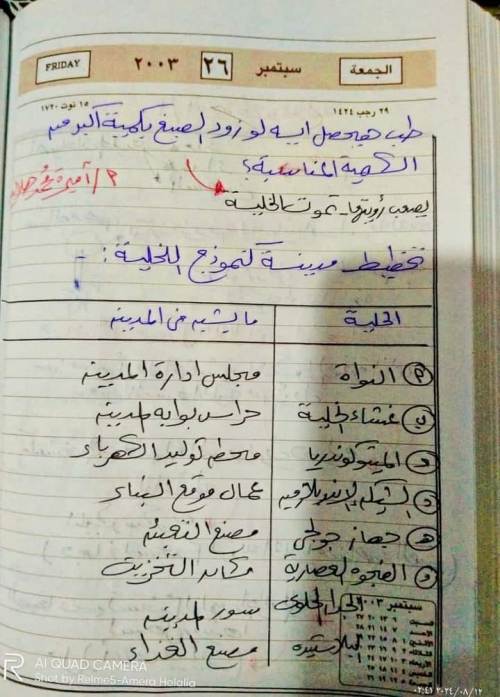 FRIDAY
٢٠٠٣ ٢٦ سبتمبر
الجمعة
١٥ توت ١٧٢٠
٢٩ رجب ١٤٢٤
طب هيحصل ايه لو زود الصبغ بكمية أكبر من
الكمية المناسبة؟
م/أميرة محمد
يصعب رؤيتها - تموت الخلية
تخطيط مدينة كنموذج للخلية :-
الخلية | ما يشبه فى المدينه
أ النواة | مجلس ادارة المدينه
ب غشاء الخلية | حراس بوابه المدينه
ج الميتوكوندريا | محطه توليد الكهرباء
د الشبكه الاندوبلازميه | عمال موقع البناء
هـ جهاز جولجى | مصنع التعبئه
و الفجوه العصارية | مكان التخزين
الجدار الخلوى | سور المدينه
البلاستيده | مصنع الغذاء
سبتمبر ٢٠٠٣
AI QUAD CAMERA
Shot by Relme5-Amera Helalia
٢٠٢٤/٠٨/١٢